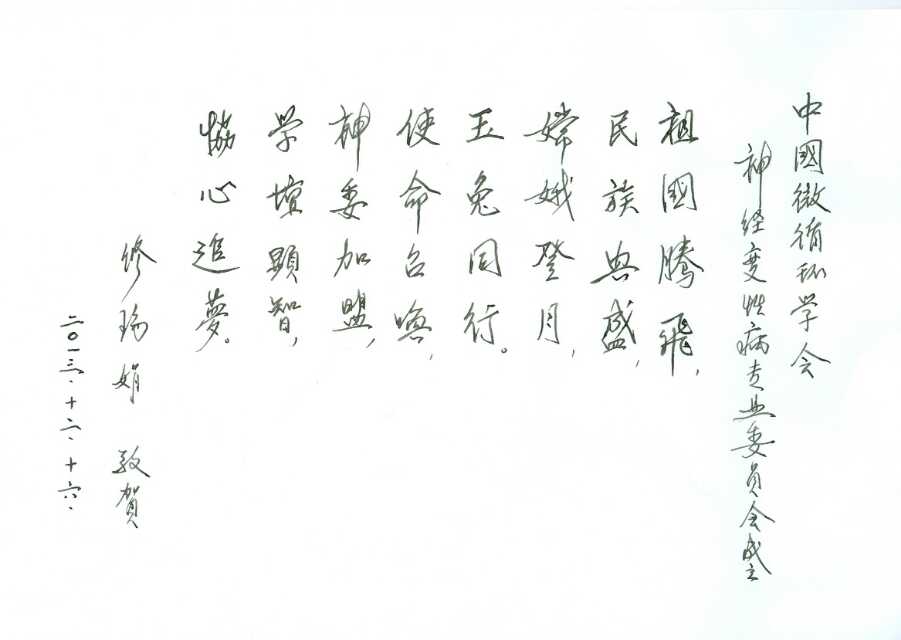 中國微循环学会
神经变性病专业委员会成立
祖國腾飛,
民族典盛,
嫦娥登月,
玉兔同行。
使命召喚,
神委加盟,
学壇顯智,
協心追夢。
修瑞娟 敬賀
二〇一三.十二.十六.